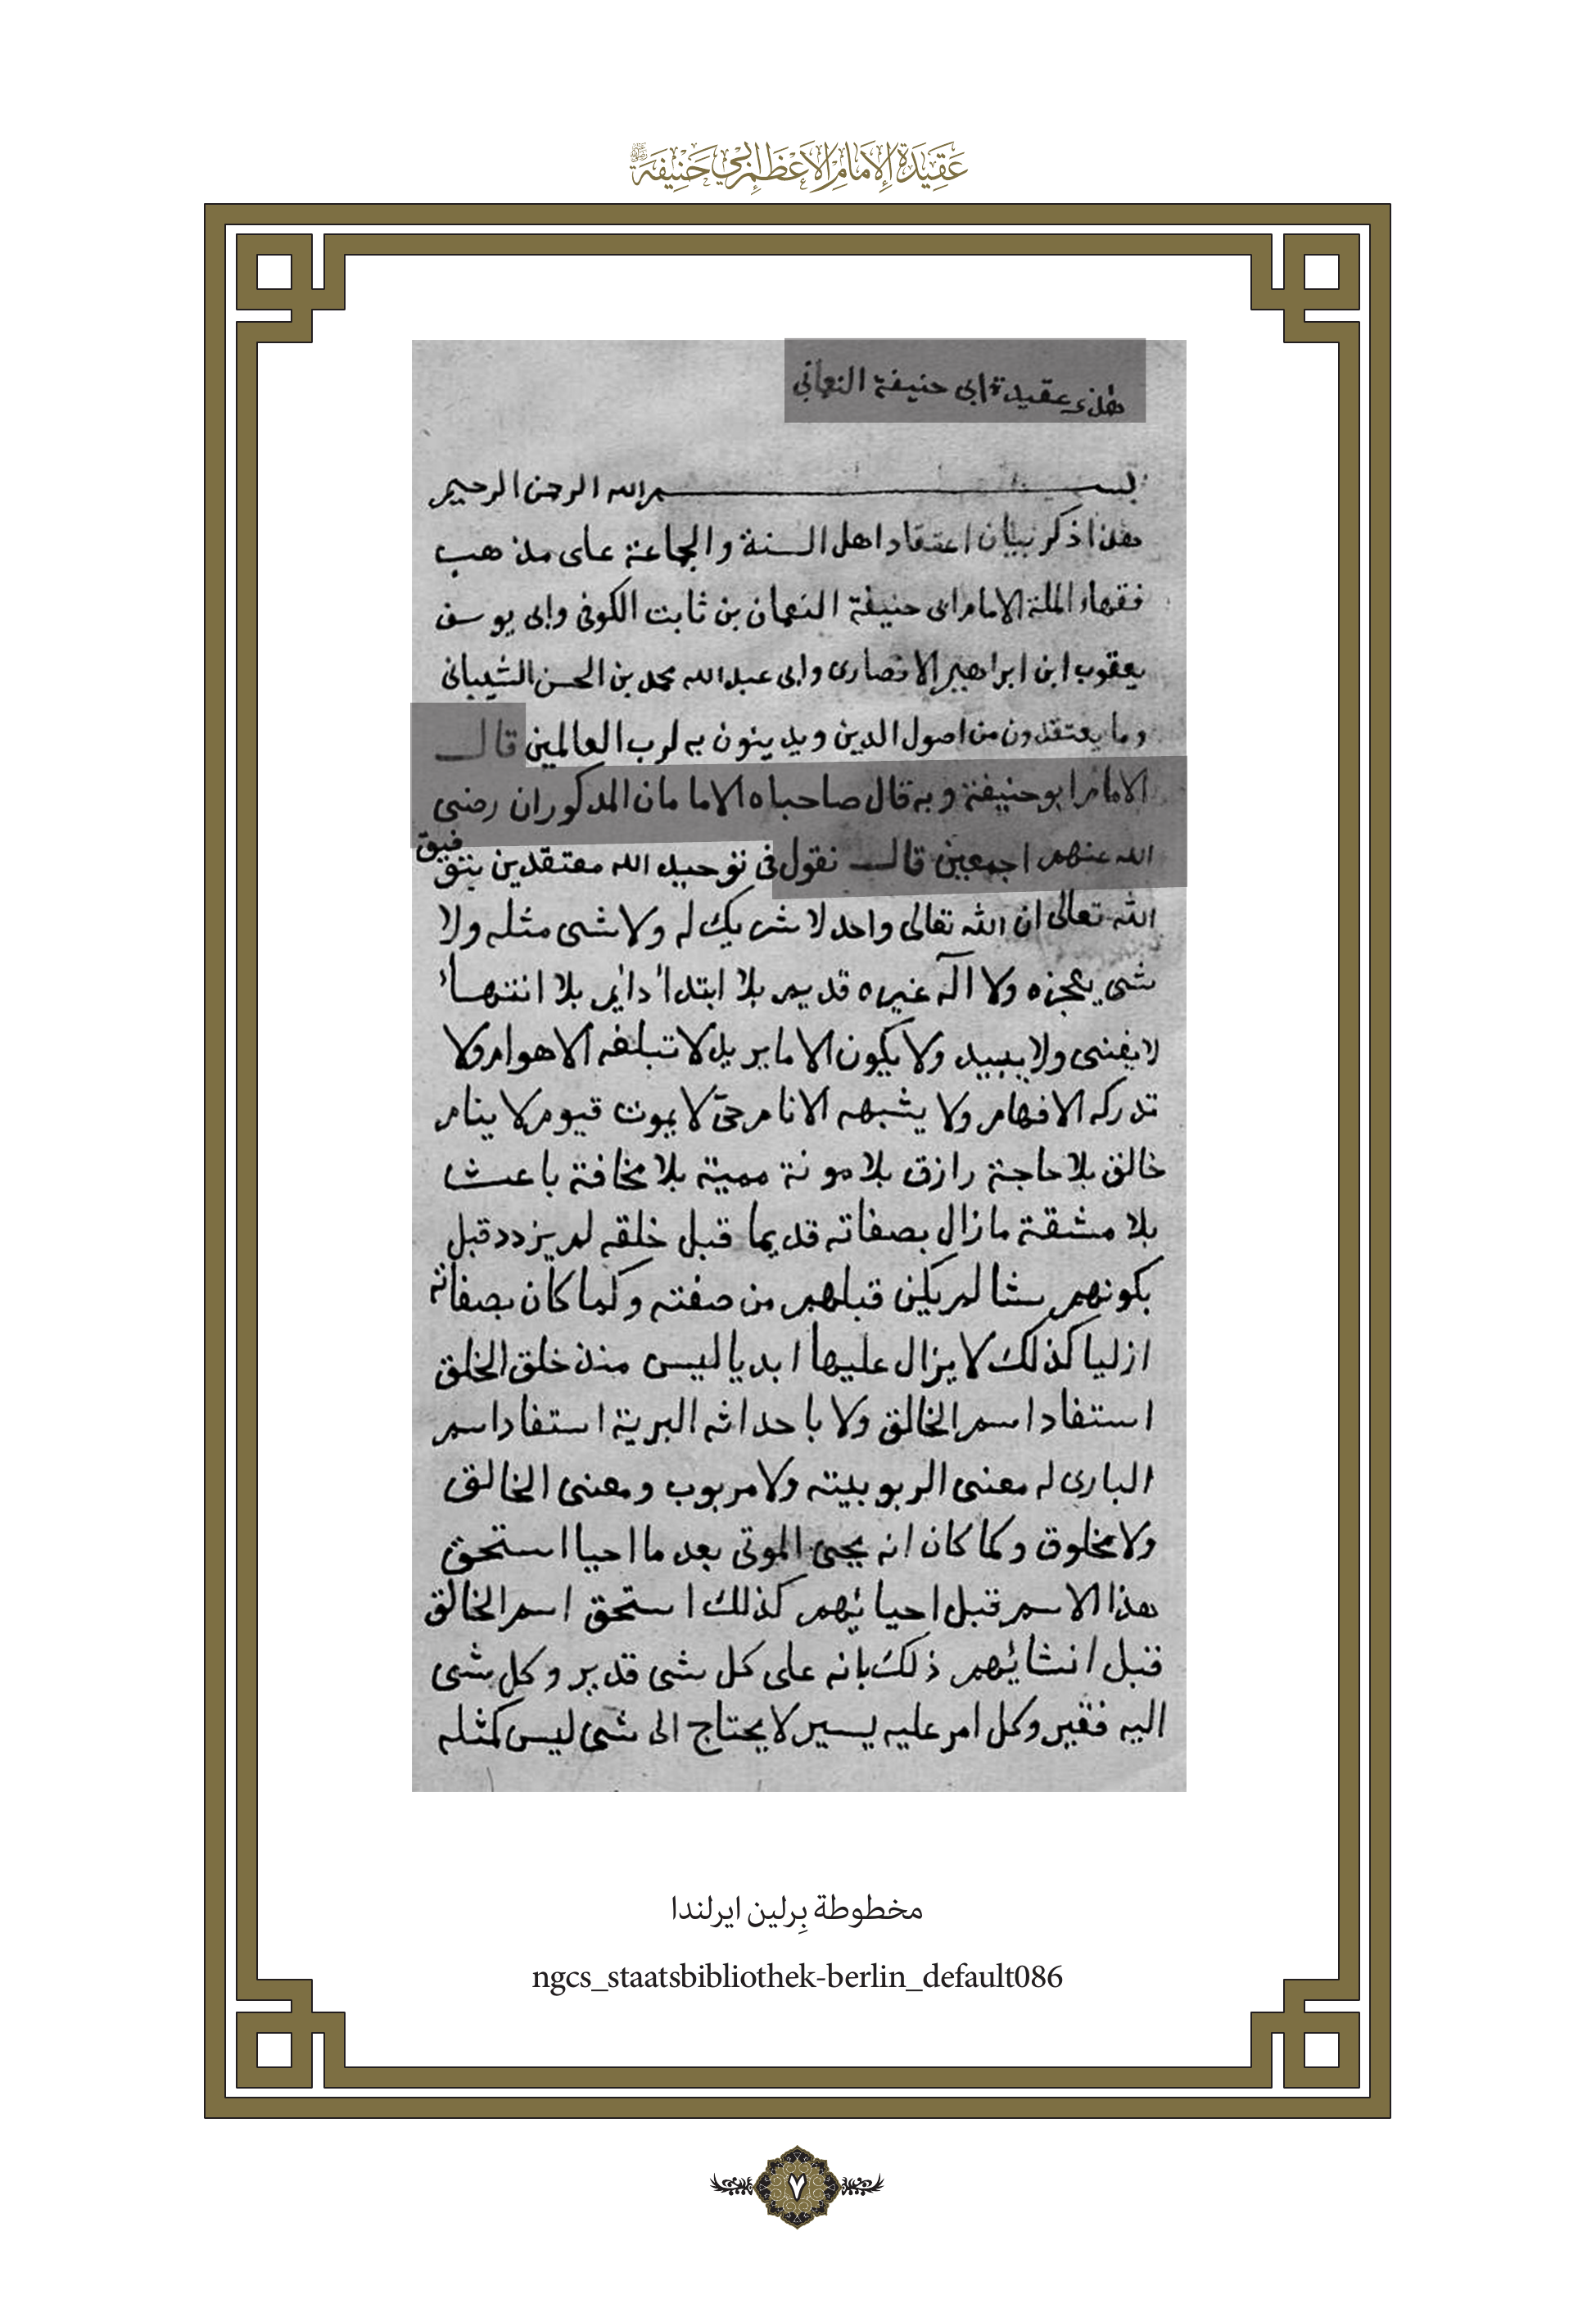 عَقِيدَةُ الإِمَامِ الأَعْظَمِ أَبِي حَنِيفَةَ
هذه عقيدة ابى حنيفة النعمانى
بسم الله الرحمن الرحيم
هذا ذكر بيان اعتقاد اهل السنة والجماعة على مذهب
فقهاء الملة الامام ابى حنيفة النعمان بن ثابت الكوفى وابى يوسف
يعقوب ابن ابراهيم الانصارى وابى عبد الله محمد بن الحسن الشيبانى
وما يعتقدون من اصول الدين ويدينون به لرب العالمين قال
الامام ابو حنيفة وبه قال صاحباه الامامان المذكوران رضى
الله عنهم اجمعين قال نقول فى توحيد الله معتقدين بتوفيق
الله تعالى ان الله تعالى واحد لا شريك له ولا شى مثله ولا
شى يعجزه ولا اله غيره قديم بلا ابتداء دائم بلا انتهاء
لا يفنى ولا يبيد ولا يكون الا ما يريد لا تبلغه الاهوام ولا
تدركه الافهام ولا يشبهه الانام حىّ لا يموت قيوم لا ينام
خالق بلا حاجة رازق بلا مونة مميتة بلا مخافة باعث
بلا مشقة ما زال بصفاته قديما قبل خلقه لم يزدد قبل
بكونهم شا لم يكن قبلهم من صفته وكما كان بصفاته
ازليا كذلك لا يزال عليها ابديا ليس منذ خلق الخلق
استفاد اسم الخالق ولا باحداثه البرية استفاد اسم
البارى له معنى الربوبيته ولا مربوب ومعنى الخالق
ولا مخلوق وكما كان انه يحيى الموتى بعد ما احيا استحق
هذا الاسم قبل احيائهم كذلك استحق اسم الخالق
قبل انشائهم ذلك بانه على كل شى قدير وكل شى
اليه فقير وكل امر عليه يسير لا يحتاج الى شى ليس كمثله
مخطوطة بِرلين ايرلندا
ngcs_staatsbibliothek-berlin_default086
٧